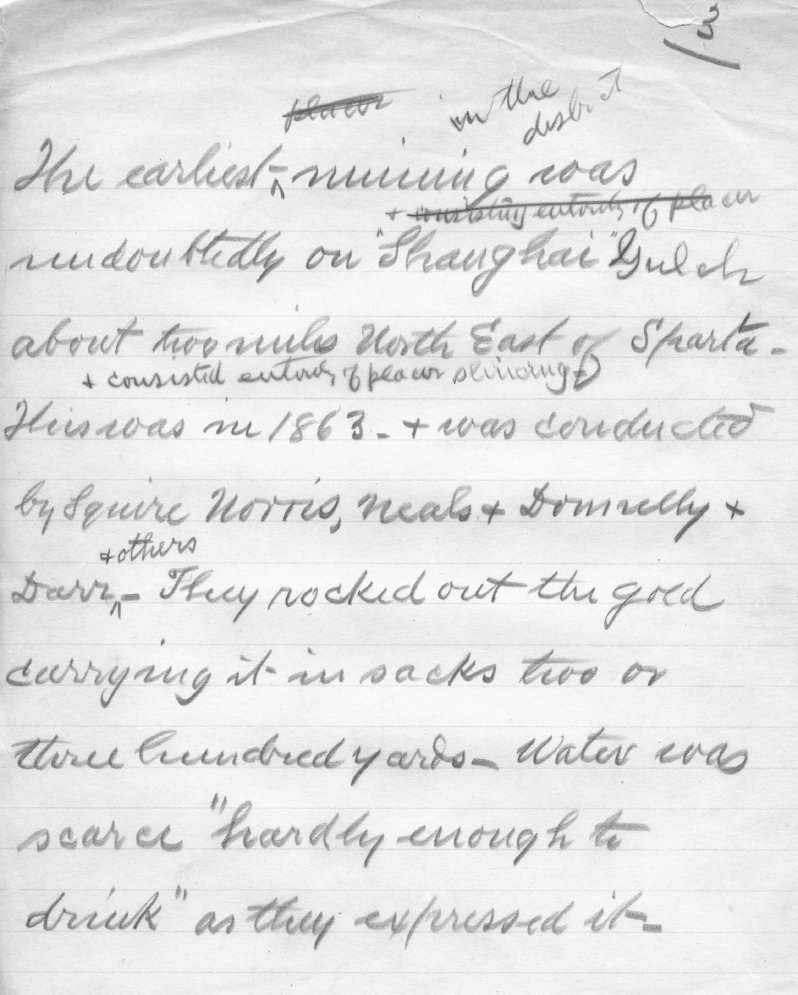 3
placer
in the
district
The earliest ^ mining was
+ consisting entirely of placer
undoubtedly on "Shanghai" Gulch
about two miles North East of Sparta -
+ consisted entirely of placer
This was in 1863 - + was conducted
by Squire Norris, Neals + Donnelly +
+ others
Darr ^ - They rocked out the gold
carrying it in sacks two or
three hundred yards - Water was
scarce "hardly enough to
drink" as they expressed it -